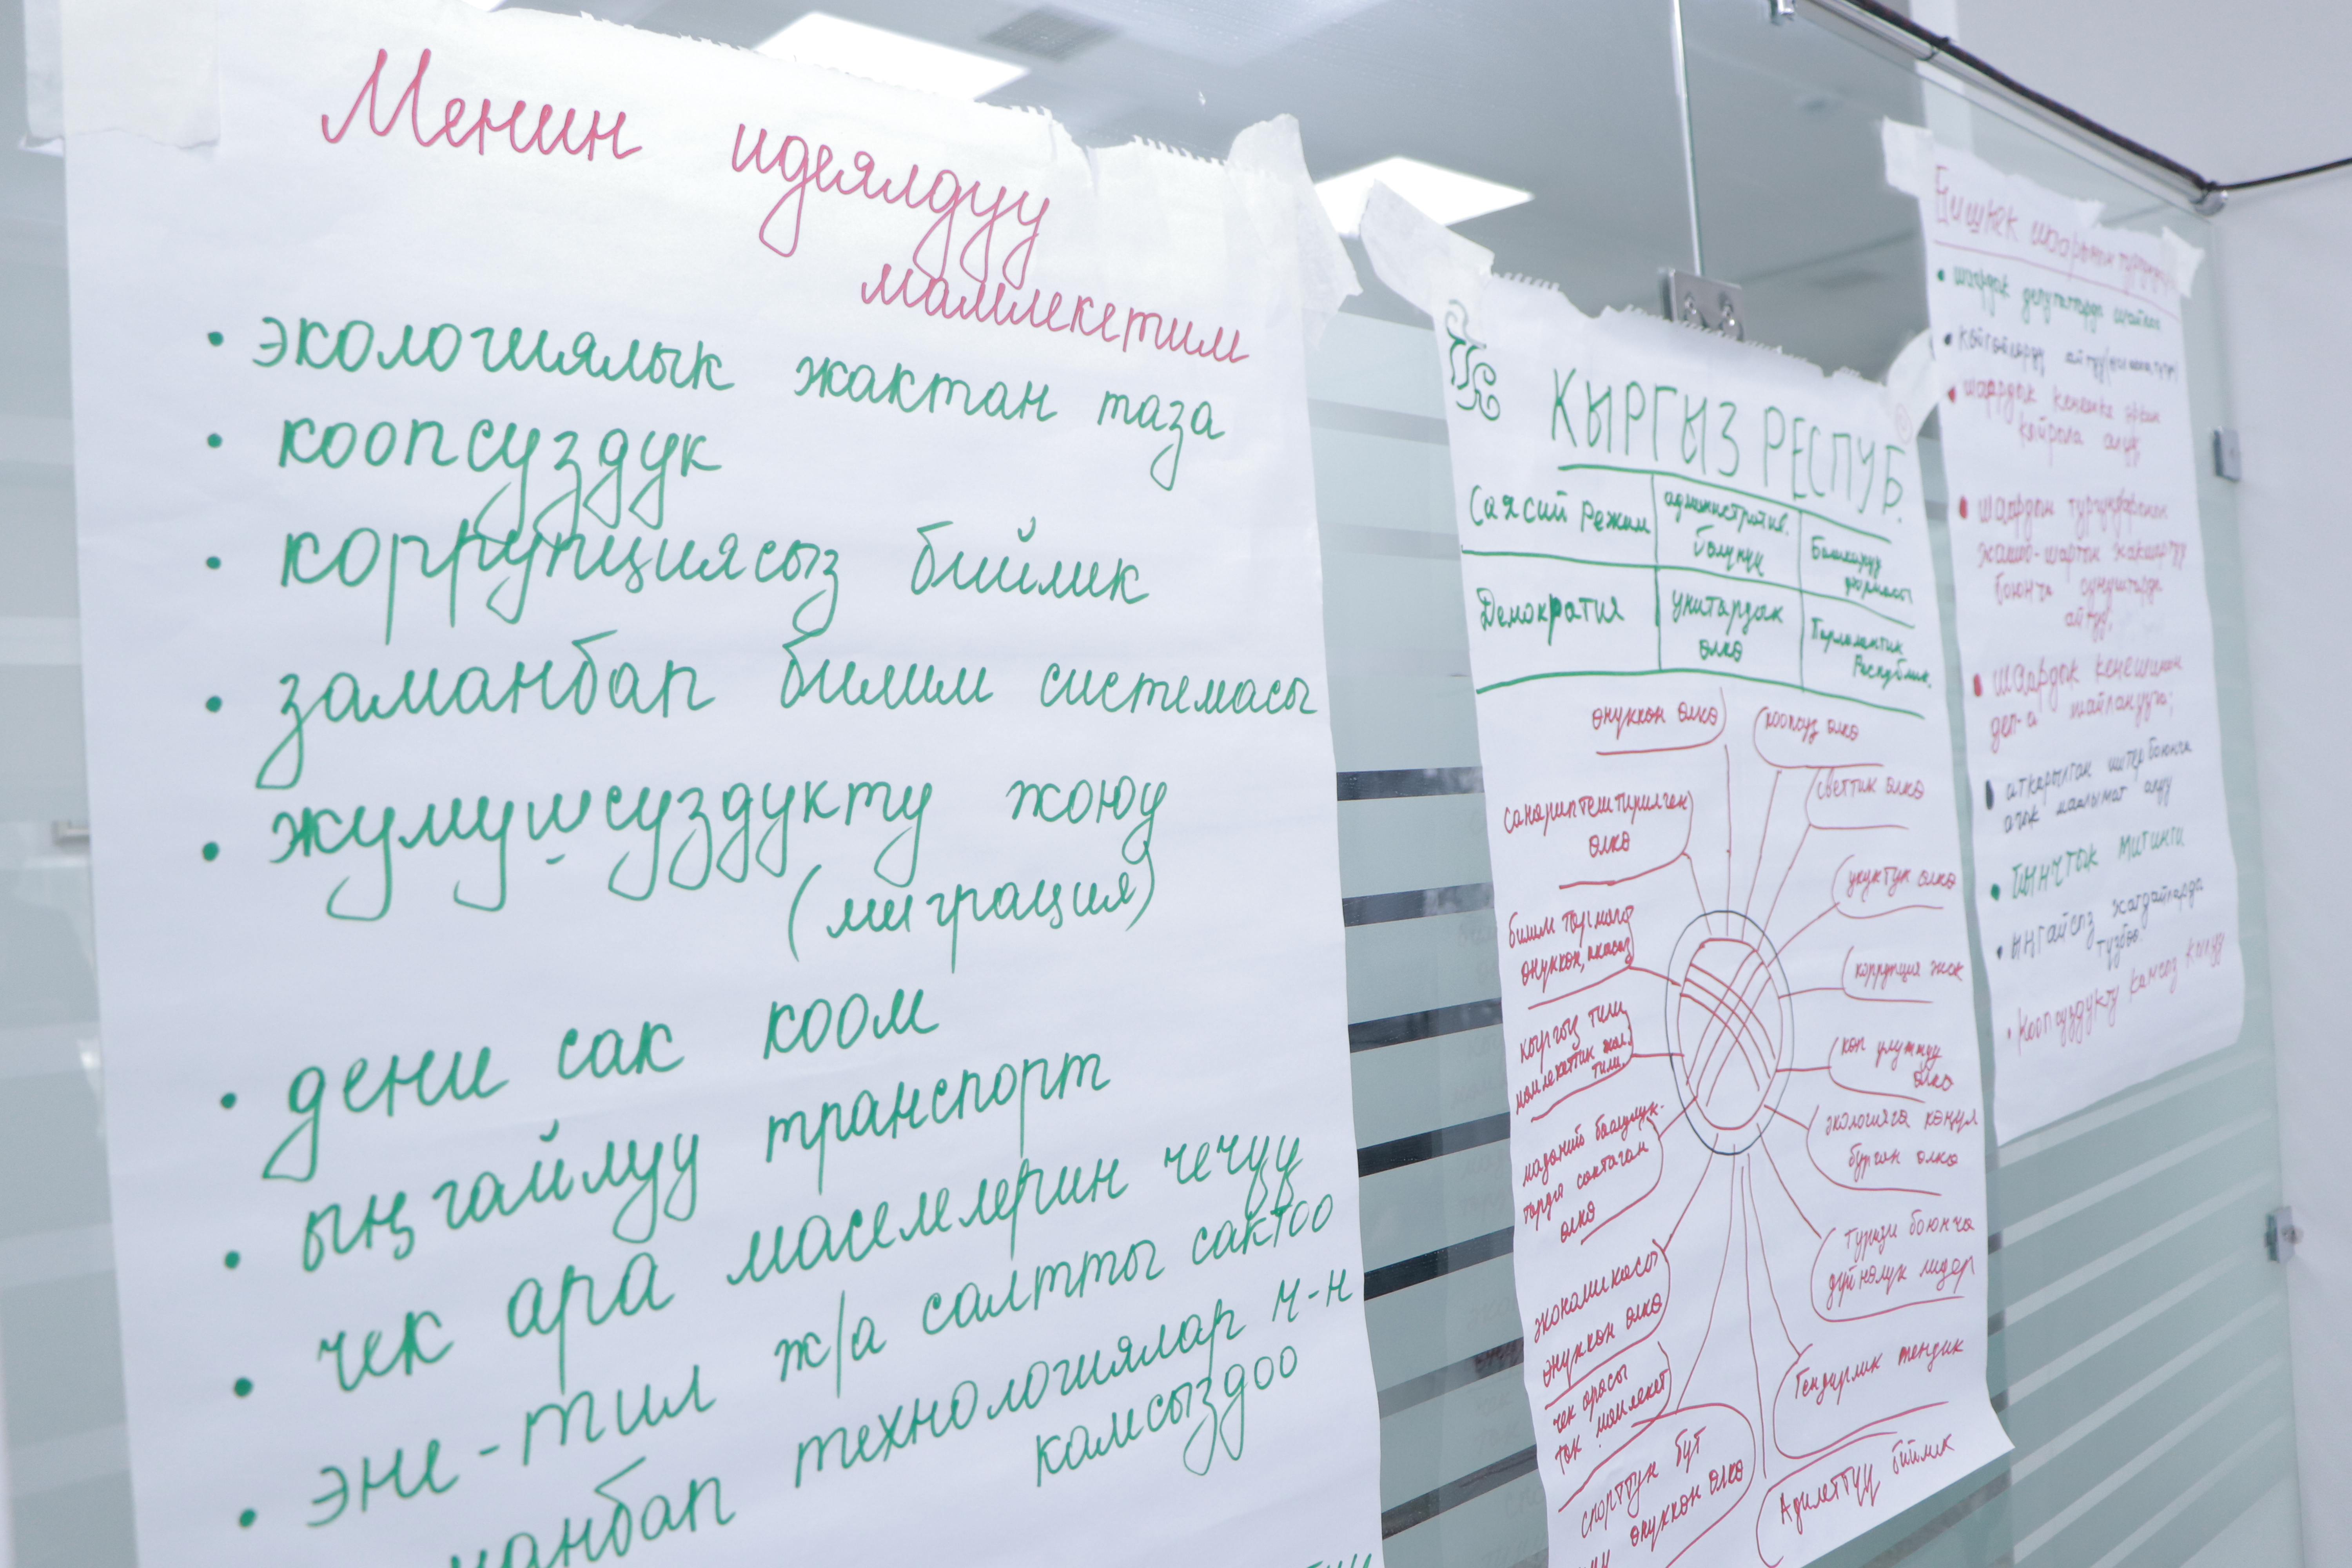 Менин идеялдуу
мамлекетим
• экологиялык жактан таза
• коопсуздук
• коррупциясыз бийлик
• заманбап билим системасы
• жумушсуздукту жоюу
(миграция)
• дени сак коом
• ыңгайлуу транспорт
• чек ара маселелерин чечүү
• эне-тил ж/а салтты сактоо
технологиялар м-н
камсыздоо
КЫРГЫЗ РЕСПУБ.
Саясий режим
административ.
бөлүнүү
Башкаруу
формасы
Демократия
унитардык
өлкө
Парламенттик
Республик.
өнүккөн өлкө
коопсуз өлкө
светтик өлкө
санариптештирилген
өлкө
укуктук өлкө
билим тармагы
өнүккөн,
коррупция жок
кыргыз тили
мамлекеттик
тили
көп улуттуу
өлкө
маданий баалуулук-
тарды сактаган
өлкө
экологияга көңүл
бурган өлкө
туризм боюнча
дүйнөлүк лидер
экономикасы
өнүккөн өлкө
Гендирлик теңдик
чек арасы
так мамлекет
спорттук
өнүккөн өлкө
Адилеттүү бийлик
Бишкек шаарынын
• шаардык депутаттарды шайлоо
• көйгөйлөрдү айтуу
• шаардык кеңешке эркин
кайрыла алуу;
• шаардын тургундарынын
жашоо-шартын жакшыртуу
боюнча сунуштарды
айтуу;
• шаардык кеңешинин
деп-а шайланууга;
• аткарылган иштер боюнча
ачык маалымат алуу
• тынчтык митинги
• ыңгайсыз жагдайларды
түзбөө
• коопсуздукту камсыз кылуу